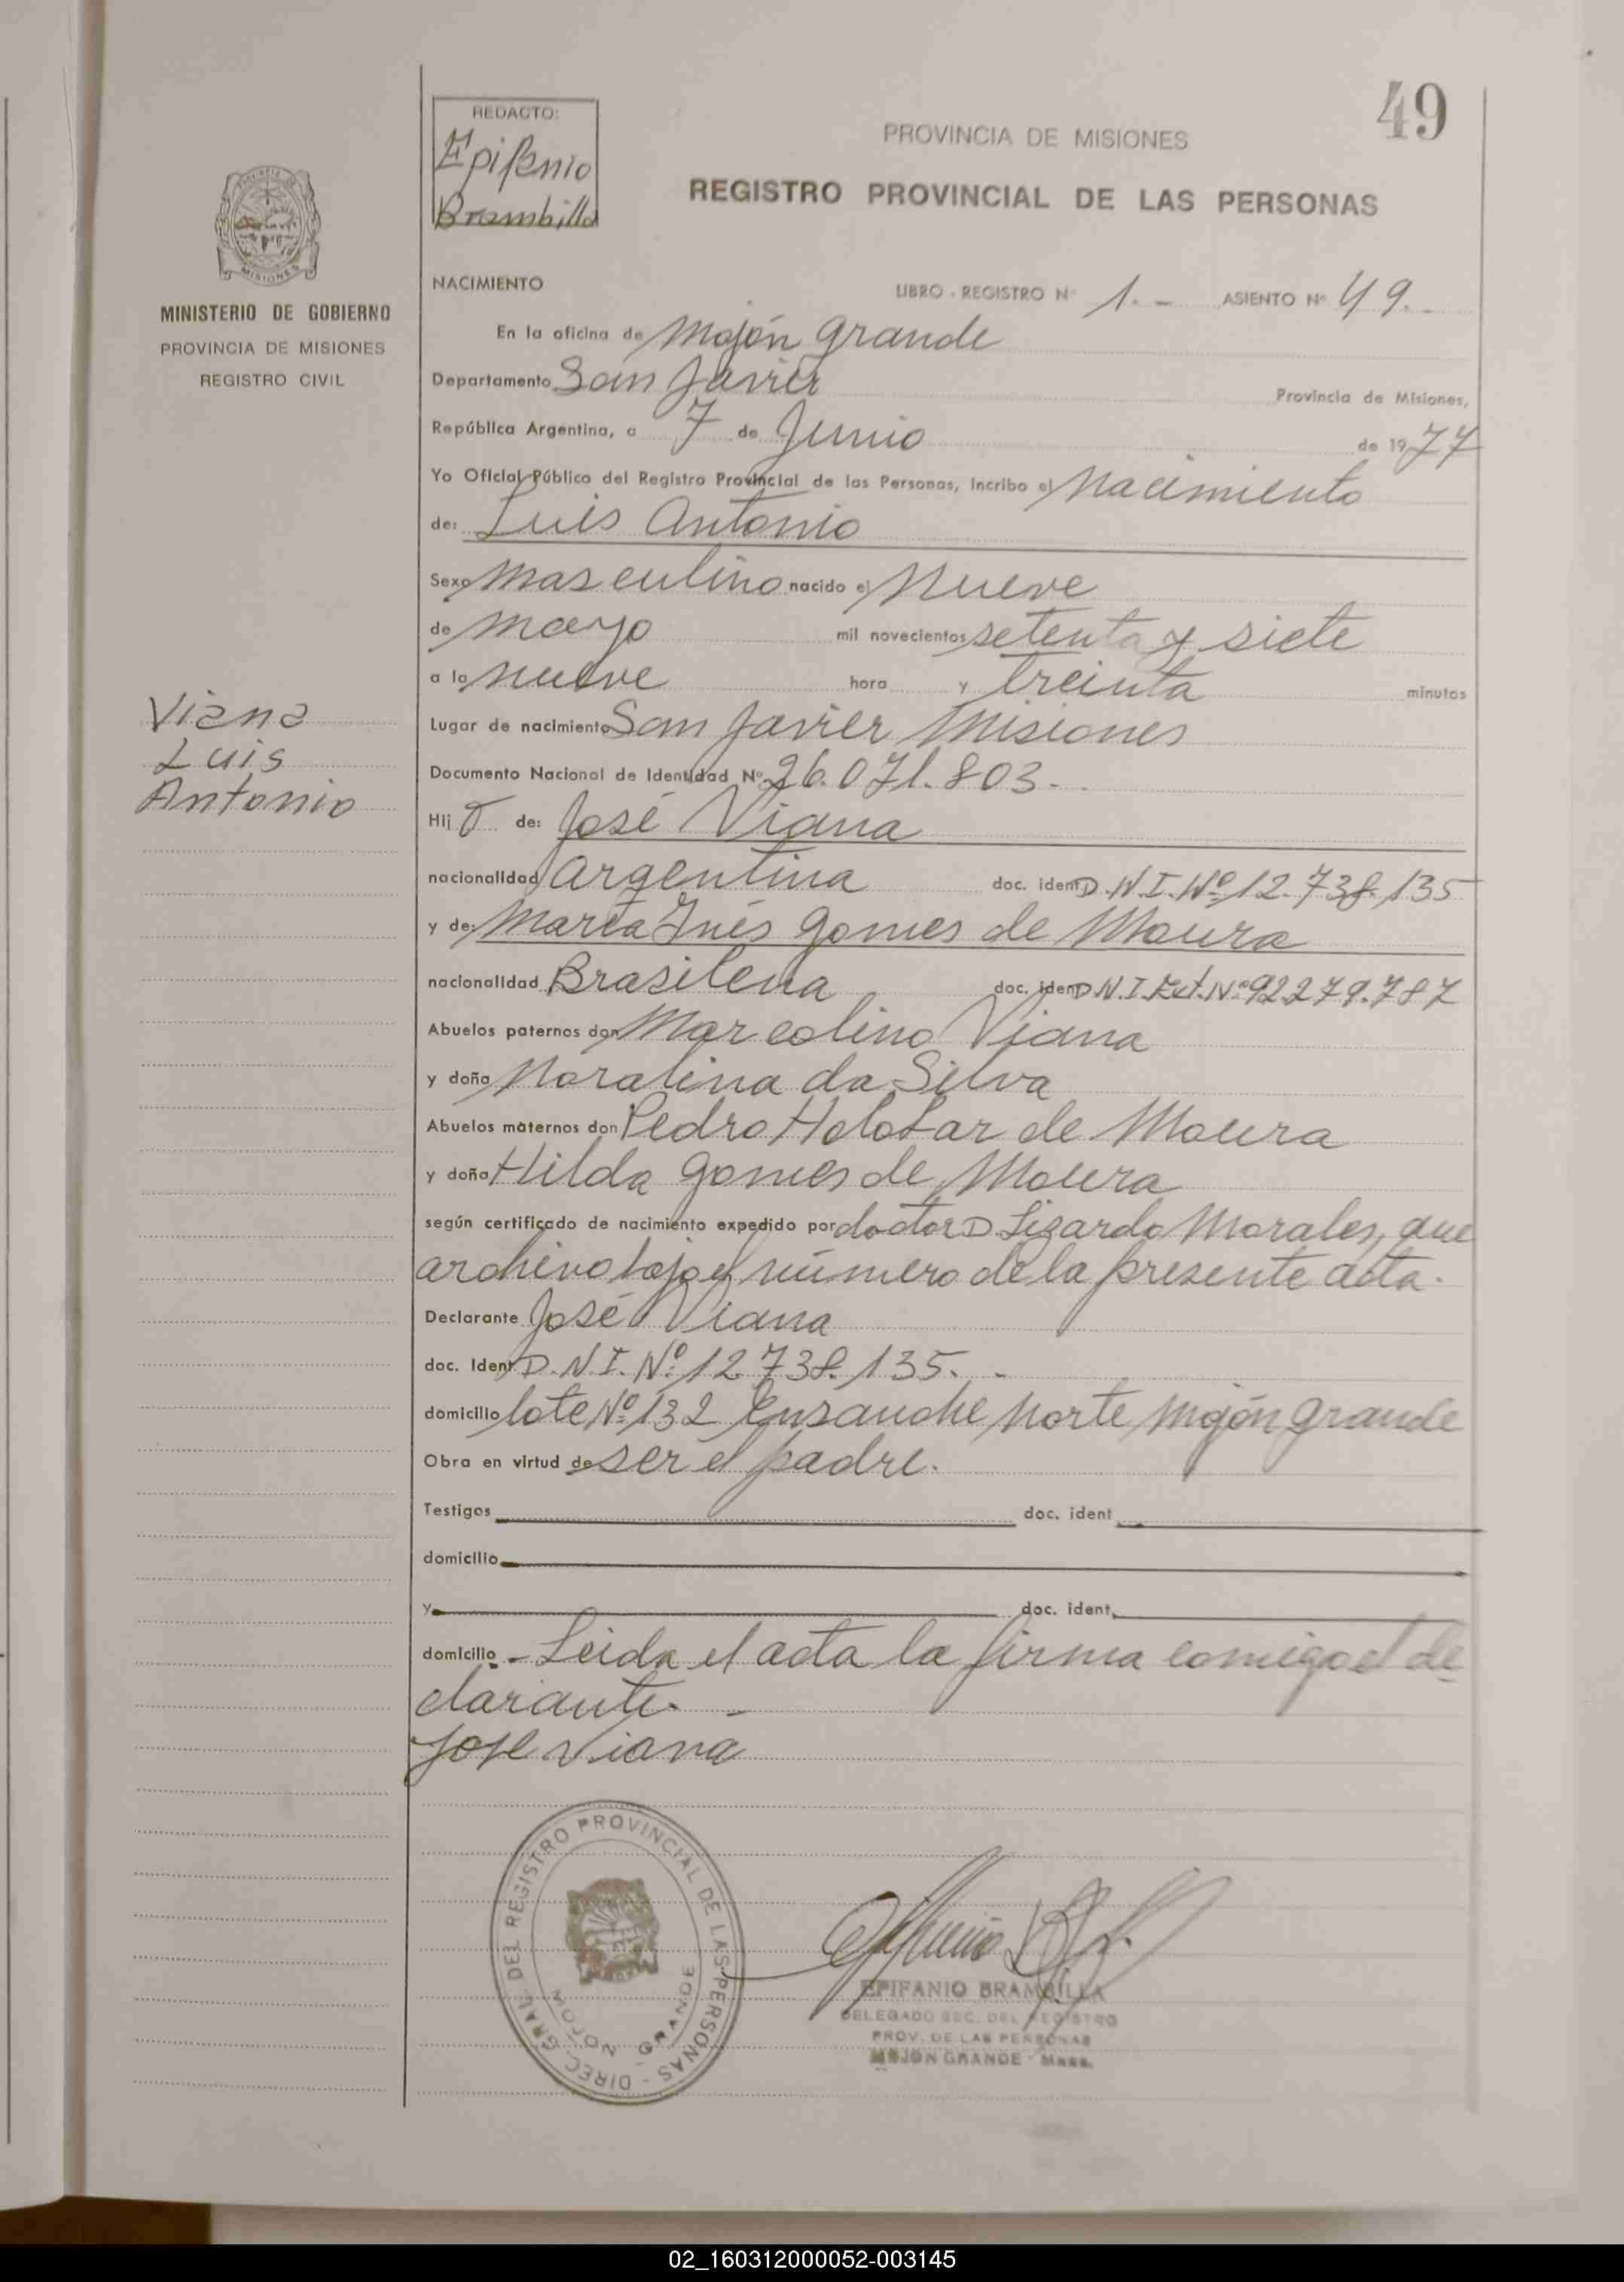 49
REDACTO:
Epifanio
Brambilla
PROVINCIA DE MISIONES
REGISTRO PROVINCIAL DE LAS PERSONAS
MISIONES
MINISTERIO DE GOBIERNO
PROVINCIA DE MISIONES
REGISTRO CIVIL
NACIMIENTO LIBRO - REGISTRO Nº 1.- ASIENTO Nº 49.
En la oficina de Mojón grande
Departamento San Javier Provincia de Misiones,
República Argentina, a 7 de Junio de 1977
Yo Oficial Público del Registro Provincial de las Personas, incribo el Nacimiento
de: Luis Antonio
Sexo Masculino nacido el Nueve
de mayo mil novecientos setenta y siete
a la nueve hora y treinta minutos
Viana
Luis
Antonio
Lugar de nacimiento San Javier Misiones
Documento Nacional de Identidad Nº 26.071.803.-
Hijo de: José Viana
nacionalidad Argentina doc. ident D.N.I.Nº 12.738.135
y de: María Inés Gomes de Moura
nacionalidad Brasileña doc. ident D.N.I.Ext.Nº 92.279.787
Abuelos paternos don Marcolino Viana
y doña Noralina da Silva
Abuelos maternos don Pedro de Moura
y doña Hilda gomes de Moura
según certificado de nacimiento expedido por doctor D. Lizardo Morales, que
archivo bajo el número de la presente acta.
Declarante José Viana
doc. Ident D.N.I. Nº 12.738.135.-
domicilio lote Nº 132 Ensanche Norte Mojón grande
Obra en virtud de ser el padre.
Testigos doc. ident
domicilio
y doc. ident.
domicilio - Leida el acta la firma comigo el de
clarante.-
Jose Viana
DIREC. GRAL. DEL REGISTRO PROVINCIAL DE LAS PERSONAS -
MOJON GRANDE
EPIFANIO BRAMBILLA
DELEGADO SEC. DEL REGISTRO
PROV. DE LAS PERSONAS
MOJON GRANDE - Mnes.
02_160312000052-003145